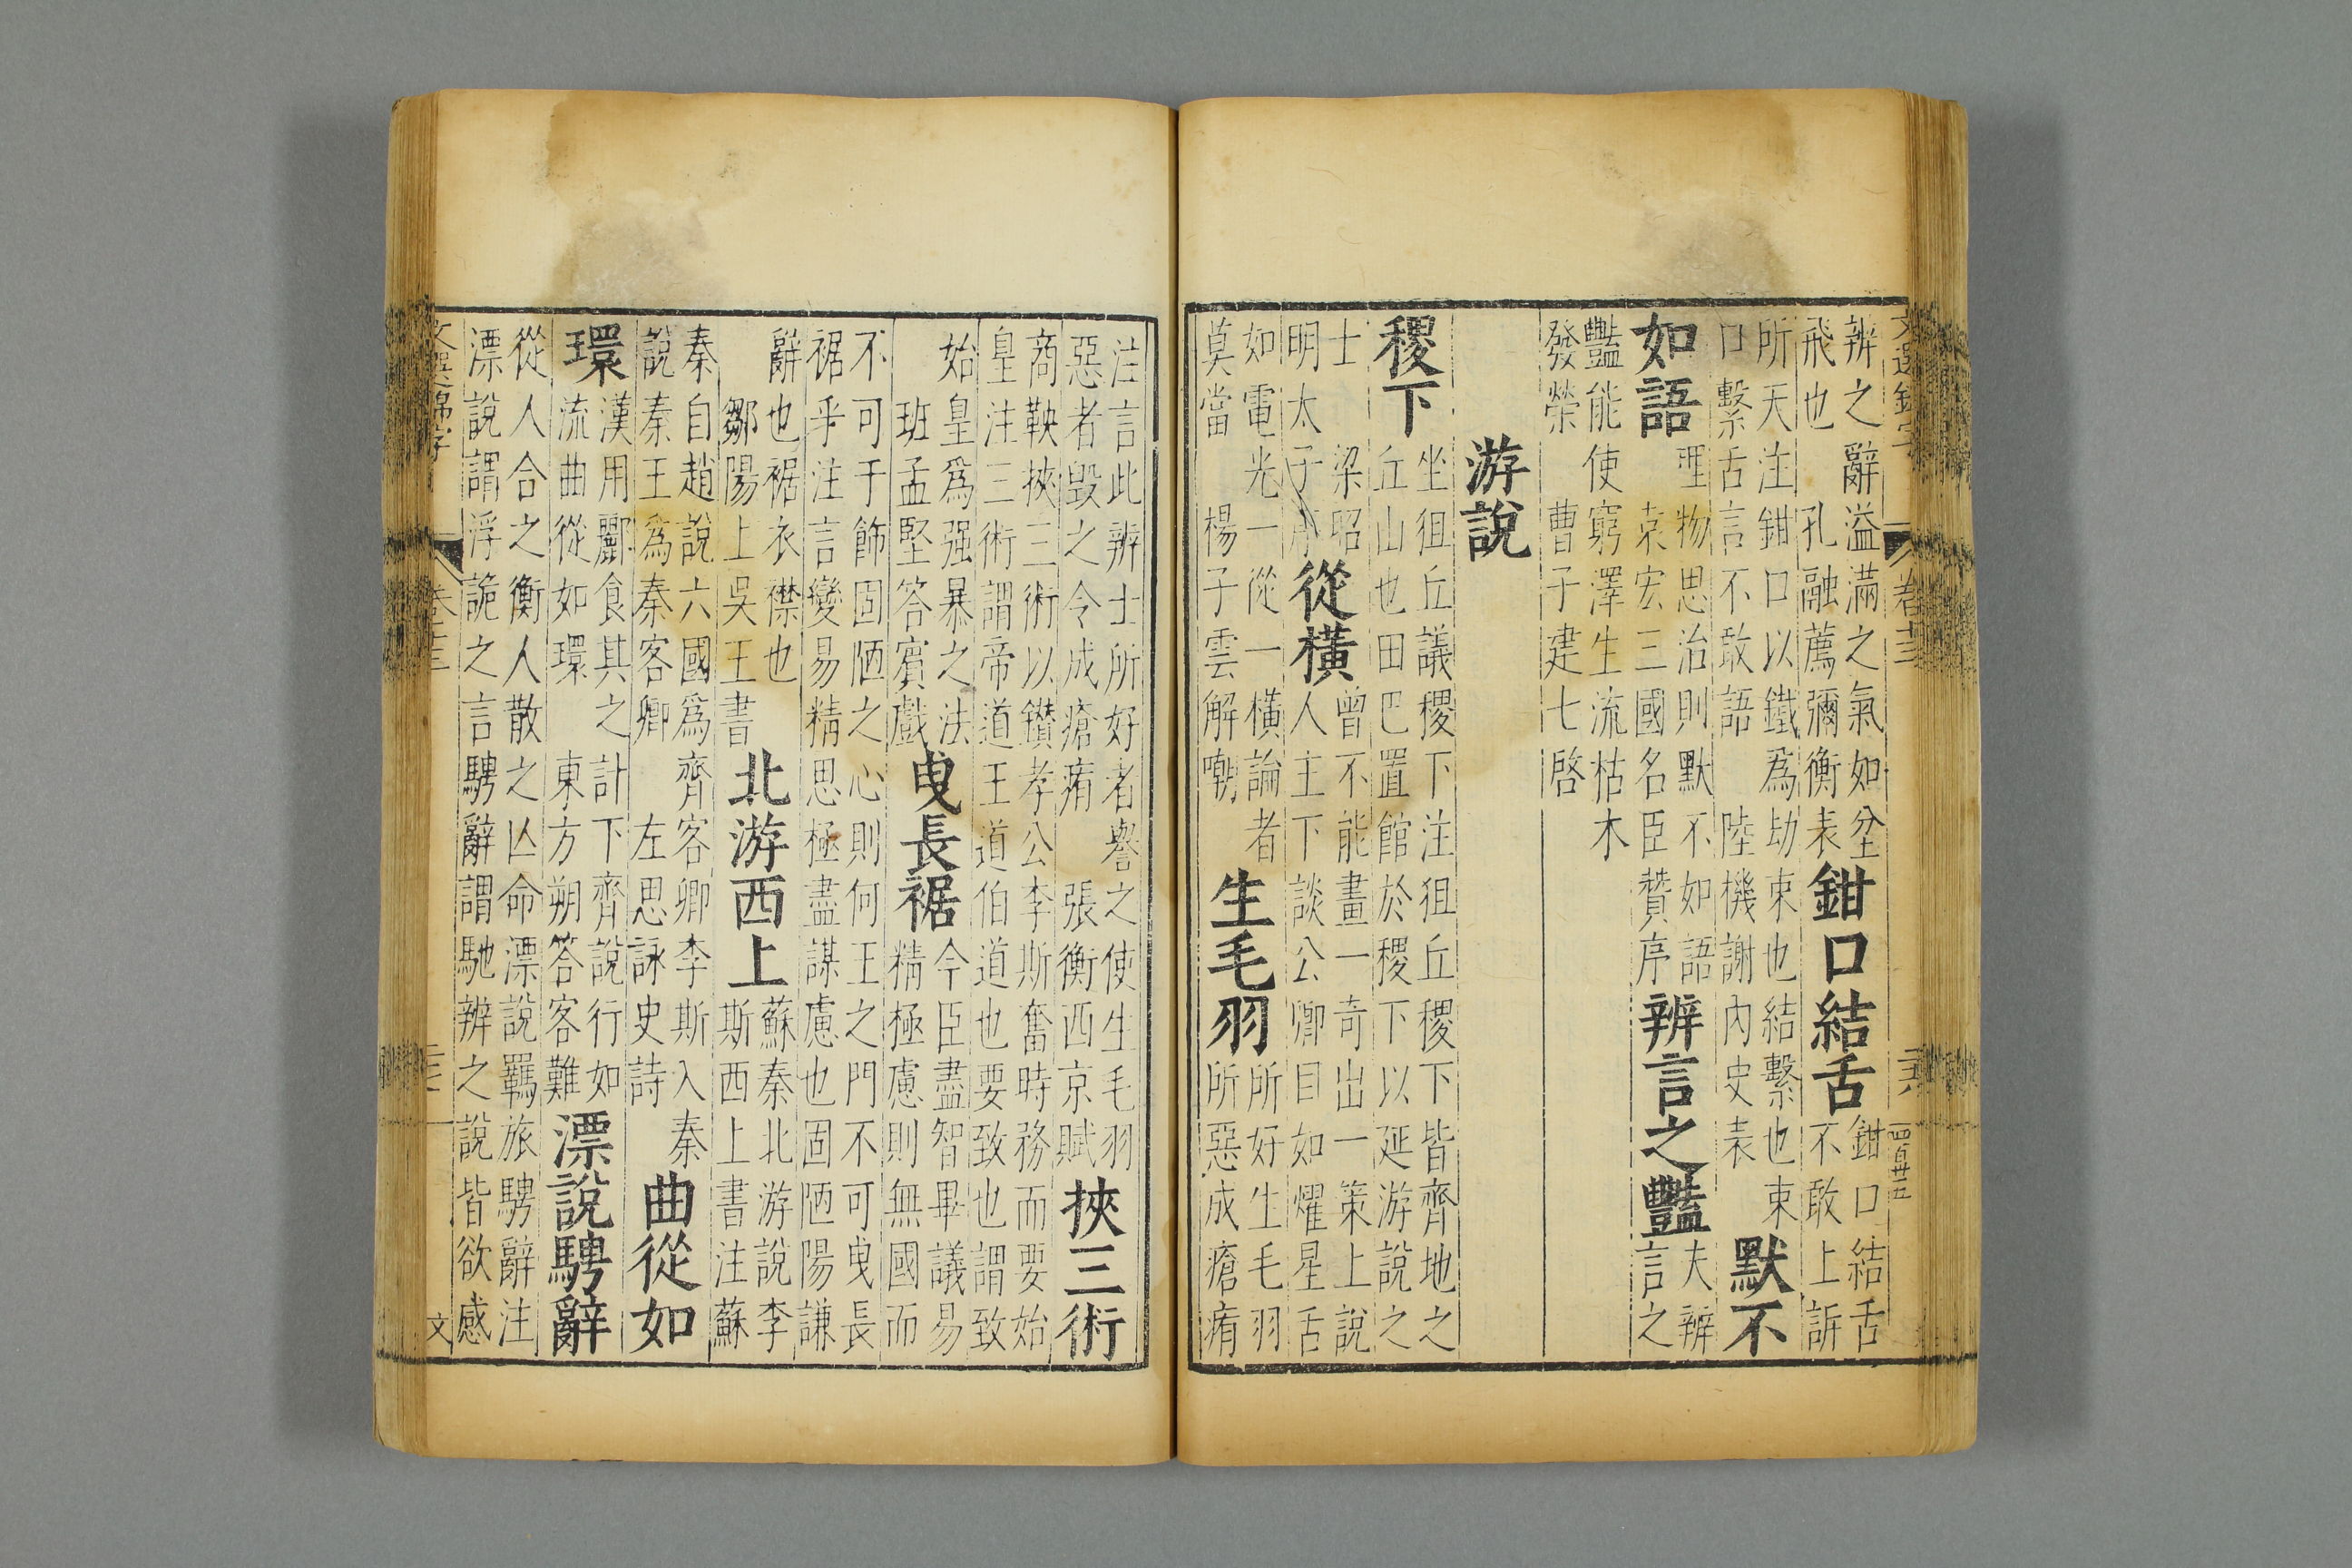 辨之辭溢滿之氣如坌
飛也　孔融薦彌衡表
鉗口結舌
鉗口結舌
不敢上訴
所天注鉗口以鐵爲刼束也結繫也束
口繫舌言不敢語　陸機謝內史表
默不
如語
理物思治則默不如語
袁宏三國名臣贊序
辨言之豔
夫辨
言之
豔能使窮澤生流枯木
發榮　曹子建七啓
游說
稷下
坐狙丘議稷下注狙丘稷下皆齊地之
丘山也田巴置館於稷下以延游說之
士　梁昭
明太子序
從橫
曾不能畫一奇出一策上說
人主下談公卿目如燿星舌
如電光一從一橫論者
莫當　楊子雲解嘲
生毛羽
所好生毛羽
所惡成瘡痏
四百廿五
注言此辨士所好者譽之使生毛羽
惡者毀之令成瘡痏　張衡西京賦
挾三術
商鞅挾三術以鑽孝公李斯奮時務而要始
皇注三術謂帝道王道伯道也要致也謂致
始皇爲强暴之法
班孟堅答賓戲
曳長裾
今臣盡智畢議易
精極慮則無國而
不可于飾固陋之心則何王之門不可曳長
裾乎注言變易精思極盡謀慮也固陋陽謙
辭也裾衣襟也
鄒陽上吳王書
北游西上
蘇秦北游說李
斯西上書注蘇
秦自趙說六國爲齊客卿李斯入秦
說秦王爲秦客卿　左思詠史詩
曲從如
環
漢用酈食其之計下齊說行如
流曲從如環　東方朔答客難
漂說騁辭
從人合之衡人散之亾命漂說羈旅騁辭注
漂說謂浮詭之言騁辭謂馳辨之說皆欲感
文